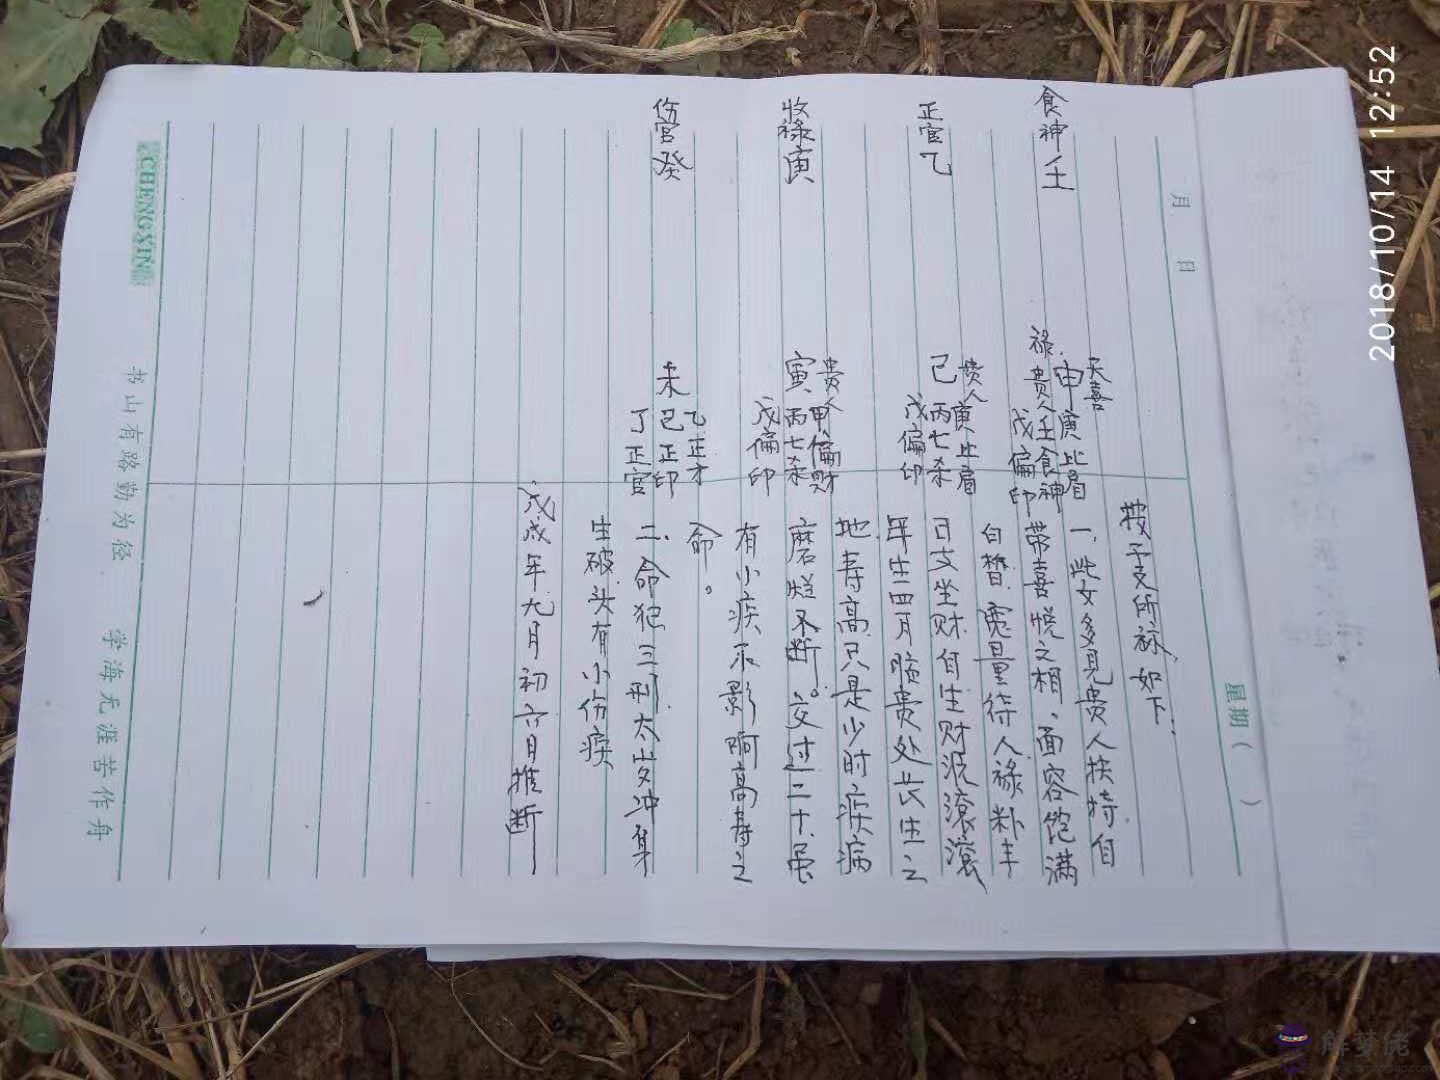 2018/10/14 12:52
月 日
星期（ ）
食神壬
正官乙
收禄庚
伤官癸
天喜
申庚比眉
禄贵人壬食神
戊偏印
贵人庚比眉
巳丙七杀
戊偏印
贵人甲偏财
寅丙七杀
戊偏印
乙正才
未己正印
丁正官
按干支所禄如下
一，此女多見贵人扶持自
带喜悦之相、面容饱满
白替宽量待人禄粮丰
日支坐财自生财源滚滚
年生四月顺贵处长生之
地寿高只是少时疾病
磨烂不断。交过二十虽
有小疾不影响高寿之
命。
二、命犯三刑太岁冲身
生破头有小伤疾
戊戌年九月初六日推断
书山有路勤为径 学海无涯苦作舟
CHENGXIN
解梦佬